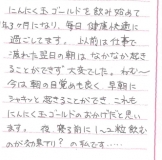 にんにく玉ゴールドを飲み始めて
3ヶ月になり、毎日健康快適に
過ごしてます。以前は仕事で
疲れた翌日の朝はなかなか起き
ることができず大変でした。ねむ〜
今は朝の目覚めも良く早朝に
シャキッと起きることができ これも
にんにく玉ゴールドのおかげだと思い
ます。 夜、寝る前に1〜2粒飲む
のが効果的!? の私です……